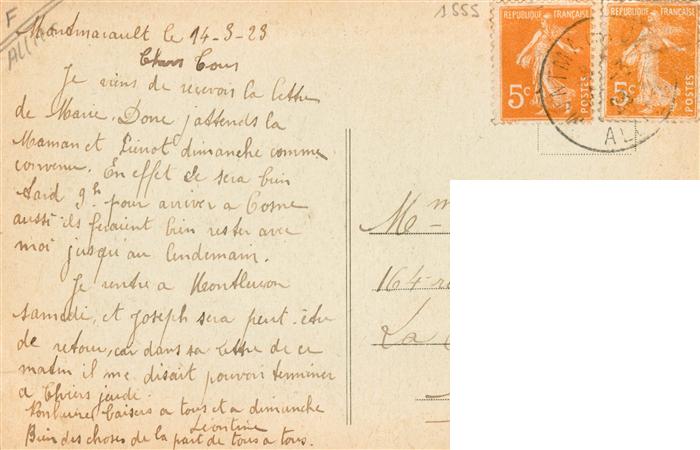 F
ALL
1555
Montmarault le 14-3-23
Chers Tous
Je viens de recevoir la lettre
de Marie. Donc j'attends la
Maman et Pierrot dimanche comme
convenu. En effet ce sera bien
tard 9h pour arriver a Cosne
aussi ils feraient bien rester avec
moi jusqu'au lendemain.
Je rentre a Montlucon
samedi, et Joseph sera peut-être
de retour, car dans sa lettre de ce
matin il me disait pouvoir terminer
a Thiers jeudi.
baisers a tous et a dimanche
Léontine
Bien des choses de la part de tous a tous.
REPUBLIQUE FRANÇAISE
5c
POSTES
REPUBLIQUE FRANÇAISE
5c
POSTES
Mm
164 r
La